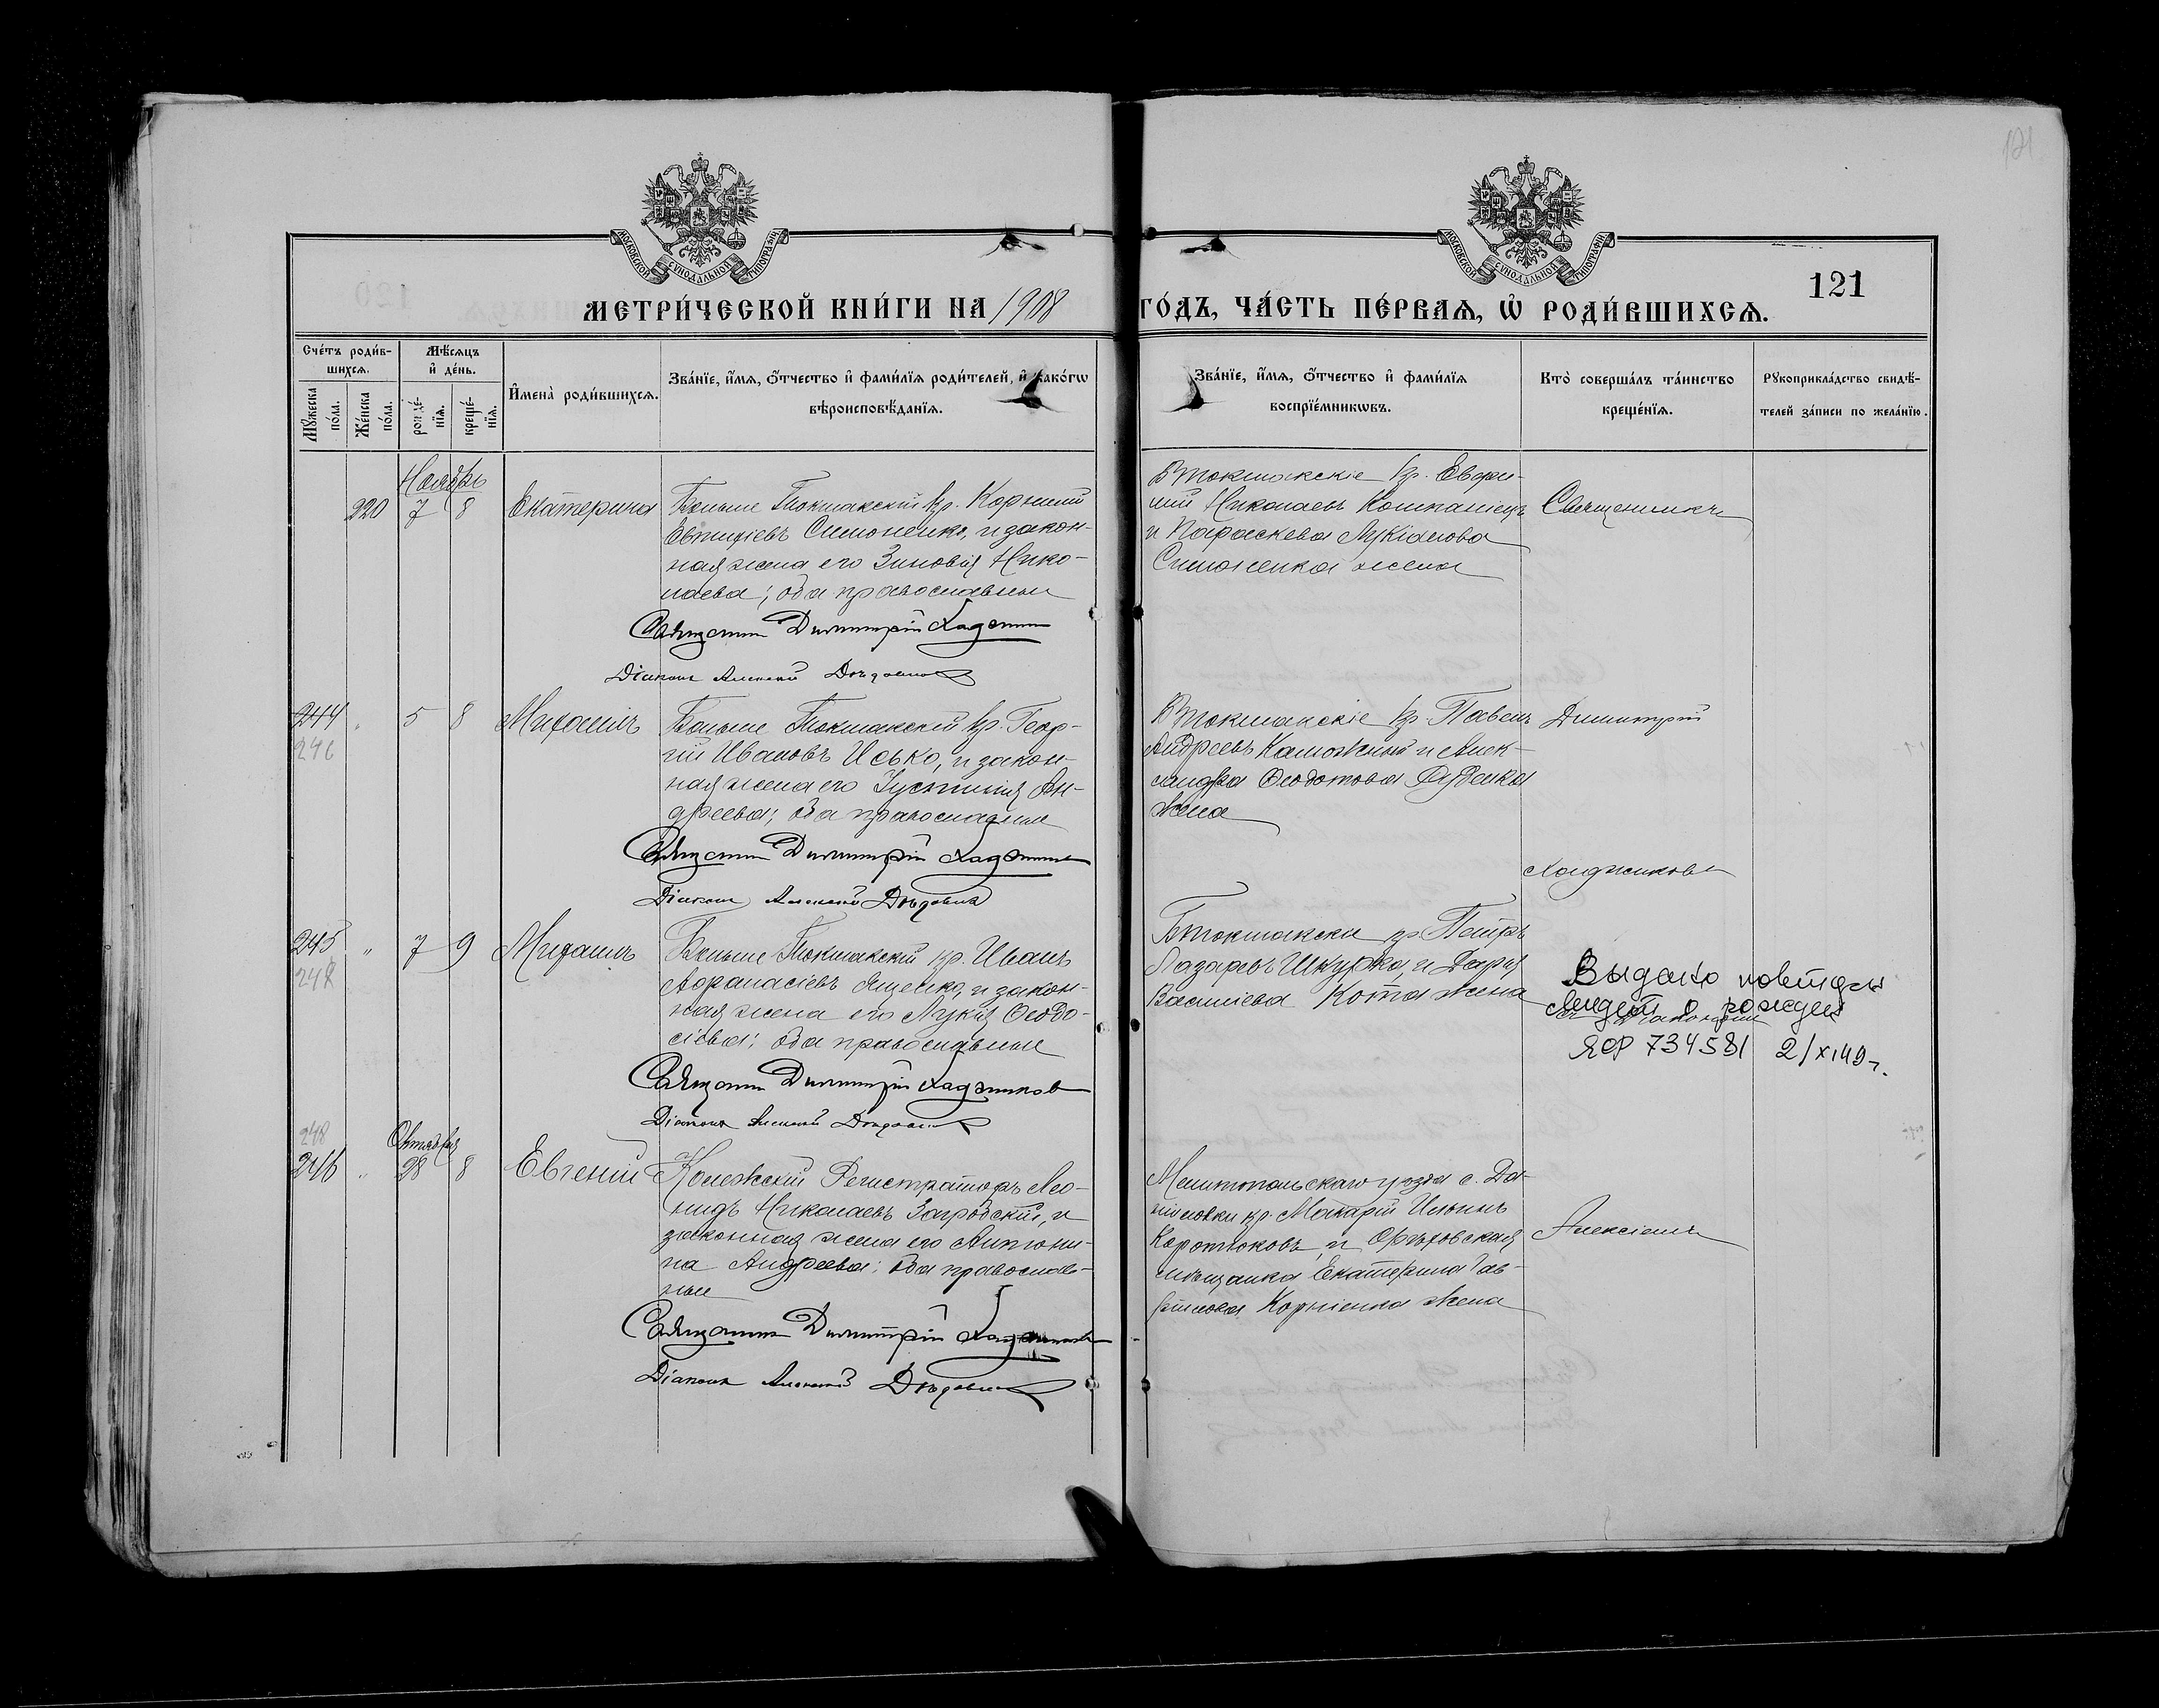 121
МОСКОВСКОЙ СѴНОДАЛЬНОЙ ТИПОГРАФІИ
МОСКОВСКОЙ СѴНОДАЛЬНОЙ ТИПОГРАФІИ
121
МЕТРИ́ЧЕСКОЙ КНИ́ГИ НА 1908 ГО́ДЪ, ЧА́СТЬ ПЕ́РВАѦ, Ѡ҆ РОДИ́ВШИХСѦ.
Сче́тъ роди́в-
шихсѧ.
Мꙋжеска по́ла.
Же́нска по́ла.
Мѣ́сѧцъ и҆ де́нь.
рожде́-
нїѧ.
креще́-
нїѧ.
И҆мена̀ роди́вшихсѧ.
Зва́нїе, и҆́мѧ, ѻ҆́тчество и҆ фами́лїѧ роди́телей, и҆ како́гѡ
вѣроисповѣ́данїѧ.
Зва́нїе, и҆́мѧ, ѻ҆́тчество и҆ фами́лїѧ
воспрїе́мникѡвъ.
Кто̀ соверша́лъ та́инство
креще́нїѧ.
Рꙋкоприкла́дство свидѣ́-
телей за́писи по жела́нїю.
Ноябрь
220 7 8 Екатерина
Больше Токмакскій кр. Корнилій
Евтихіевъ Симоненко, и закон-
ная жена его Зиновія Нико-
лаева; оба православные
Священникъ Димитрій Хаджиновъ
Діаконъ Алексій
Б Токмакскіе кр. Евфи-
мій Николаевъ Компаніецъ
и Параскева Лукіанова
Симоненкова жена
Священникъ
244 " 5 8 Михаилъ
246
Больше Токмакскій кр. Геор-
гій Ивановъ Исько, и закон-
ная жена его Іустинія Ан-
дреева; оба православные
Священникъ Димитрій Хаджиновъ
Діаконъ Алексій
Б Токмакскіе кр. Павелъ
Андреевъ Калюжный и Алек-
сандра Ѳеодотова
жена
Димитрій
Хаджиновъ
245 " 7 9 Михаилъ
Больше Токмакскій кр. Иванъ
Аѳанасіевъ Ященко, и закон-
ная жена его Лукія Ѳеодо-
сіева; оба православные
Священникъ Димитрій Хаджиновъ
Діаконъ Алексій
Б Токмакскіе кр. Петръ
Лазаревъ Шкурко, и Дарія
Василіева Кота жена
Выдано повторн
свидет о рожден
ЯОР 734581 2/XI 49 г.
248
Октября
246 " 28 8 Евгеній
Колежскій Регистраторъ Лео-
нидъ Николаевъ Загродскій, и
законная жена его Антони-
на Андреева; оба православ-
ные
Священникъ Димитрій Хаджиновъ
Діаконъ Алексій
Мелитопольскаго уѣзда с. Да-
ниловки кр. Макарій Ильинъ
Коротковъ, и Орѣховская
мѣщанка Екатерина Гав-
рилова Корніенка жена
Алексіемъ